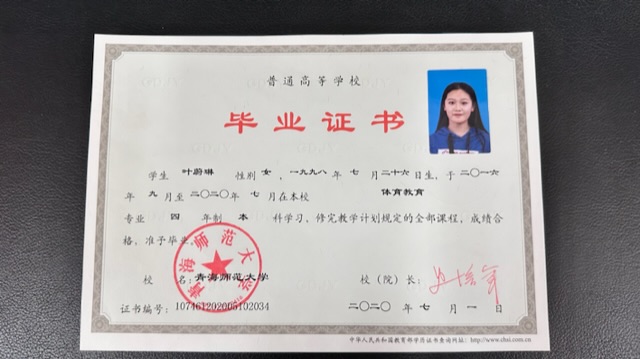 普通高等学校
毕业证书
学生 叶蔚琳 性别 女，一九九八年 七 月二十六日生，于二〇一六
年 九 月至二〇二〇年 七 月在本校 体育教育
专业 四 年制 本 科学习，修完教学计划规定的全部课程，成绩合
格，准予毕业。
校 名：青海师范大学 校（院）长：
青海师范大学
证书编号：107461202005102034 二〇二〇年 七 月 一 日
中华人民共和国教育部学历证书查询网址：http://www.chsi.com.cn